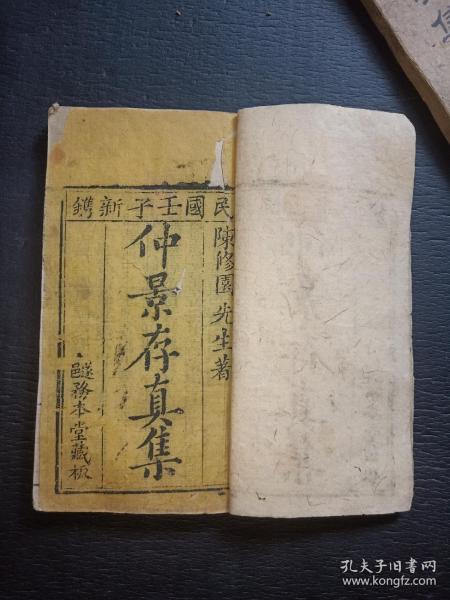 民國壬子新鐫
陳修園先生著
仲景存真集
邑務本堂藏板
孔夫子旧书网
www.kongfz.com